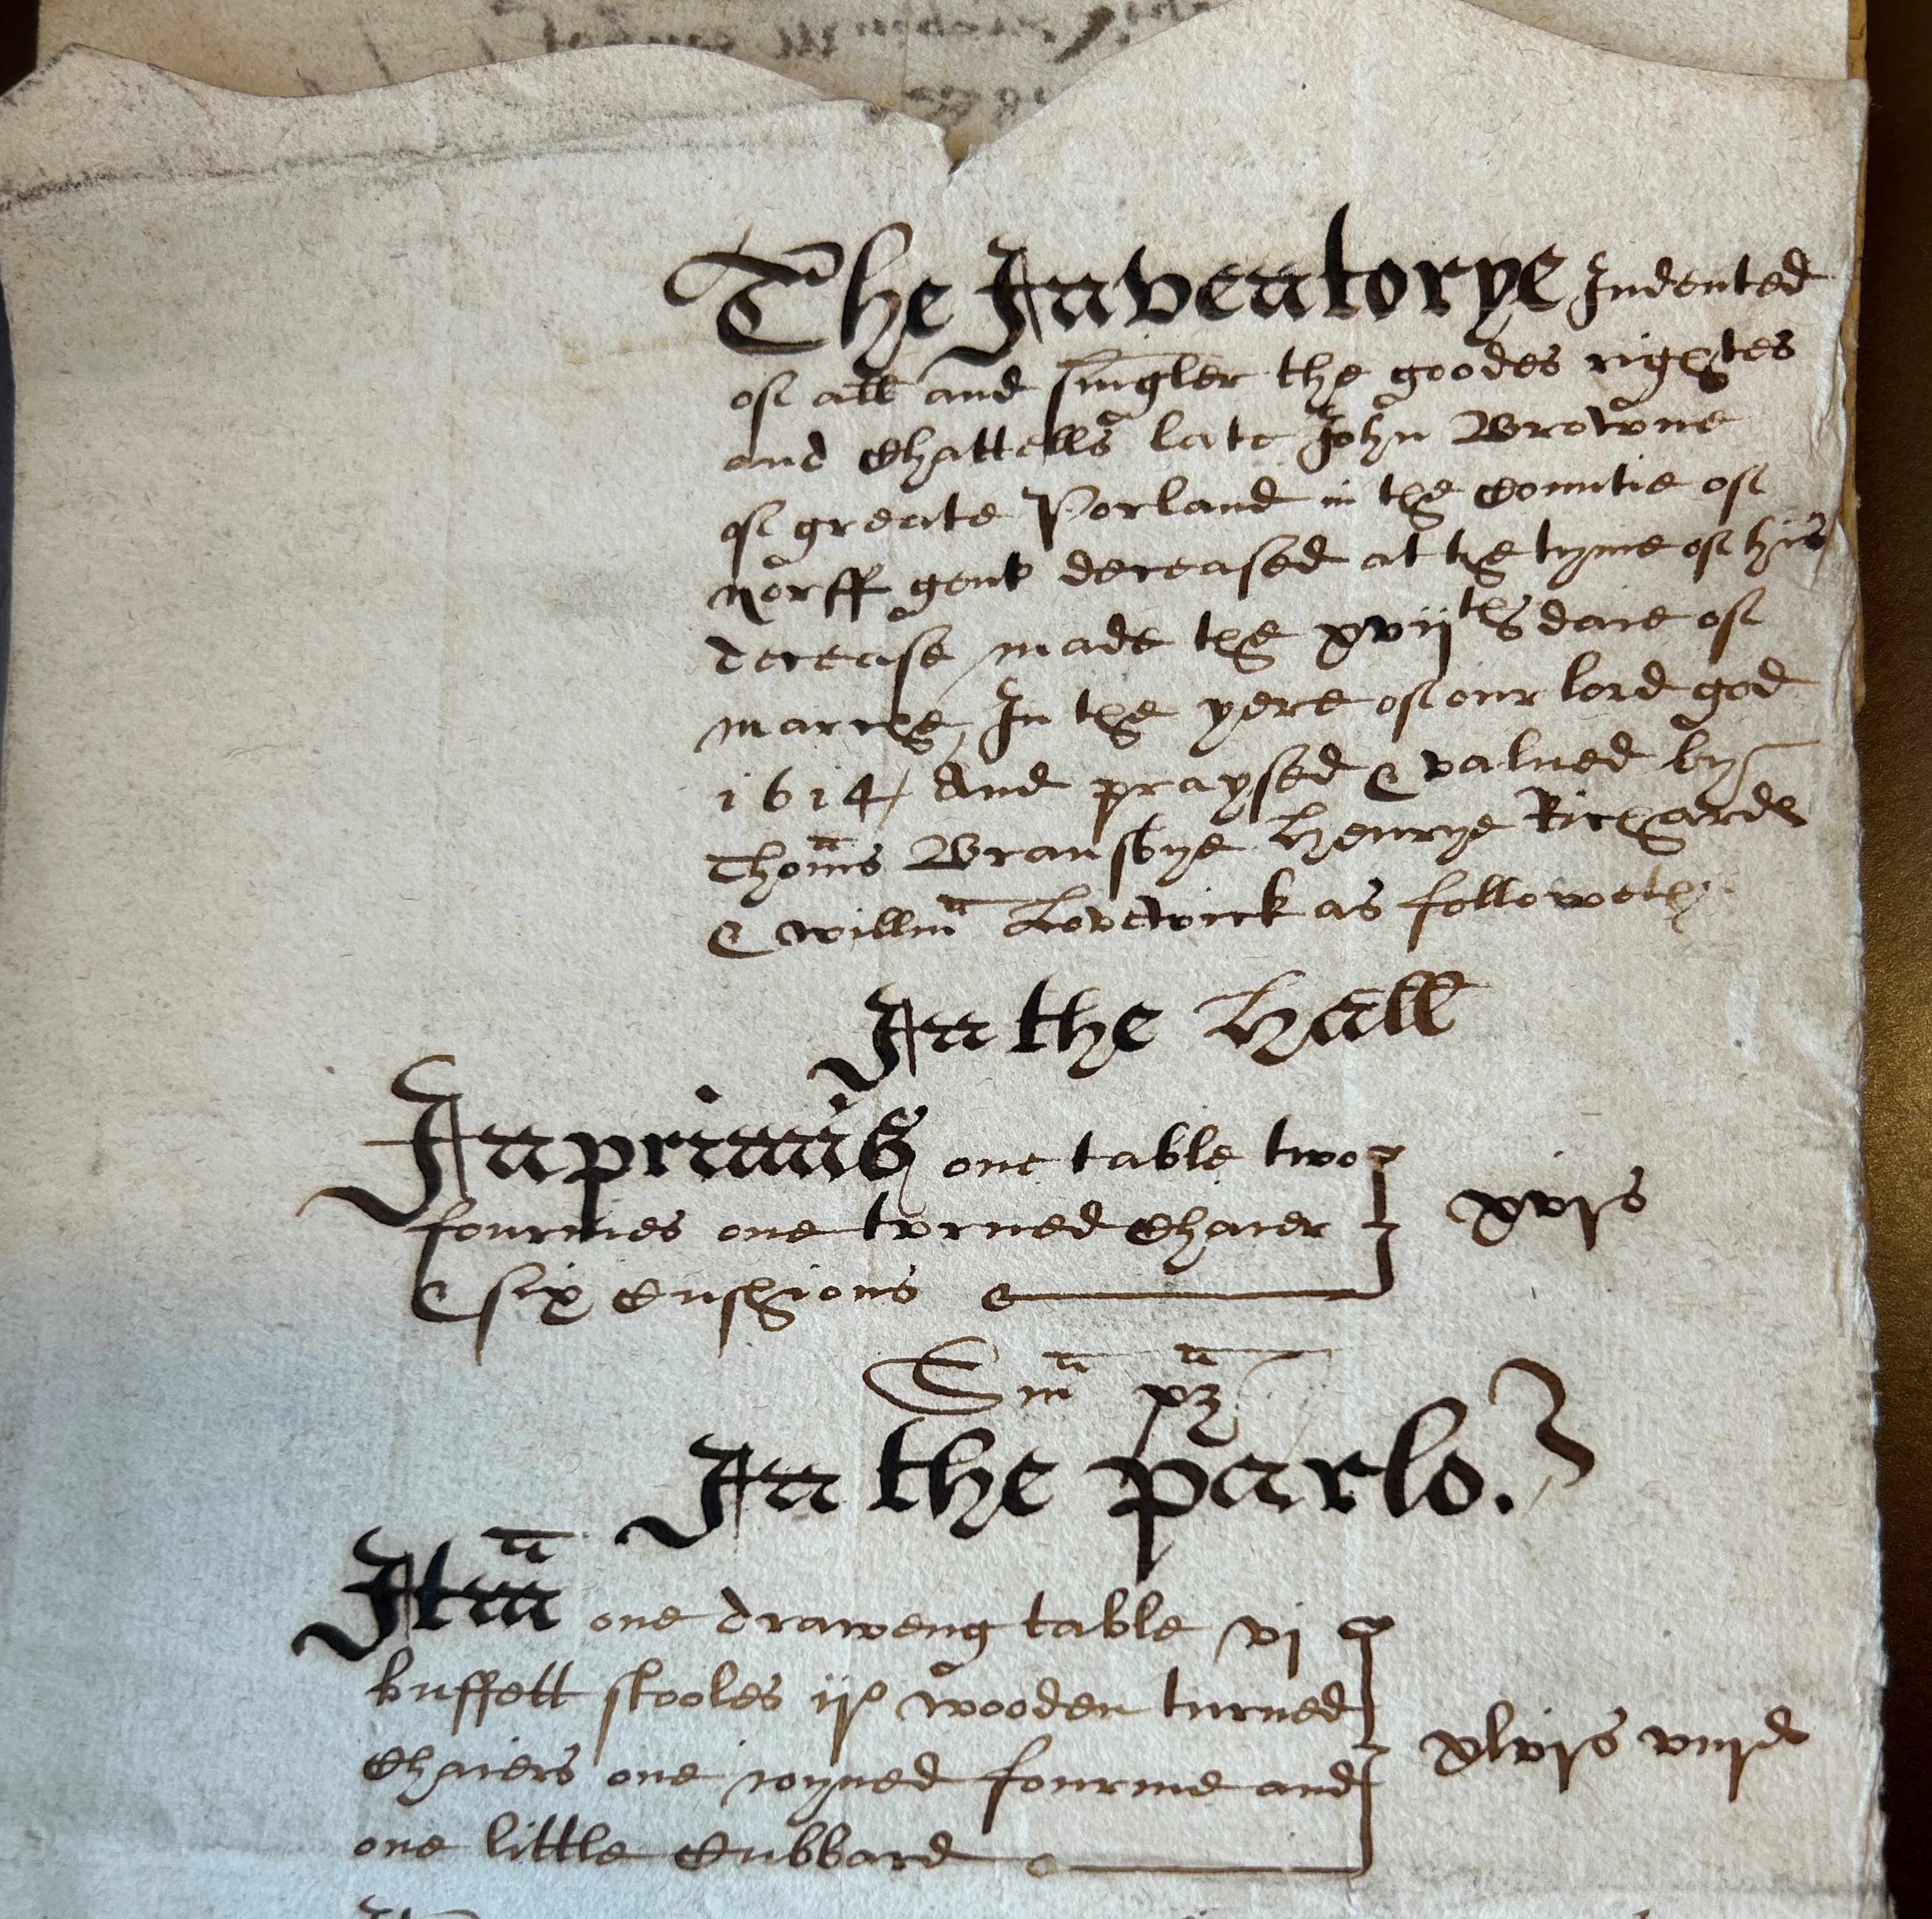 The Inventorye Indented
of all and singler the goodes rightes
and Chattells late John Browne
of greate Porland in the Countie of
norff gent deceased at the tyme of his
decease made the xvijth daie of
marche, In the yere of our lord god
1614 / And praysed & valued by
Thoms Bransbye Henrye Richards
& willm Lovewick as followeth
In the Hall
Inprimis one table two
fourmes one torned Chaier
& six Cushions
xvjs
Sm pz
In the parlo.r
Itm one draweng table vj
buffett stooles ijo wooden turned
Chaiers one ioyned fourme and
one little Cubbard
xlvjs viijd